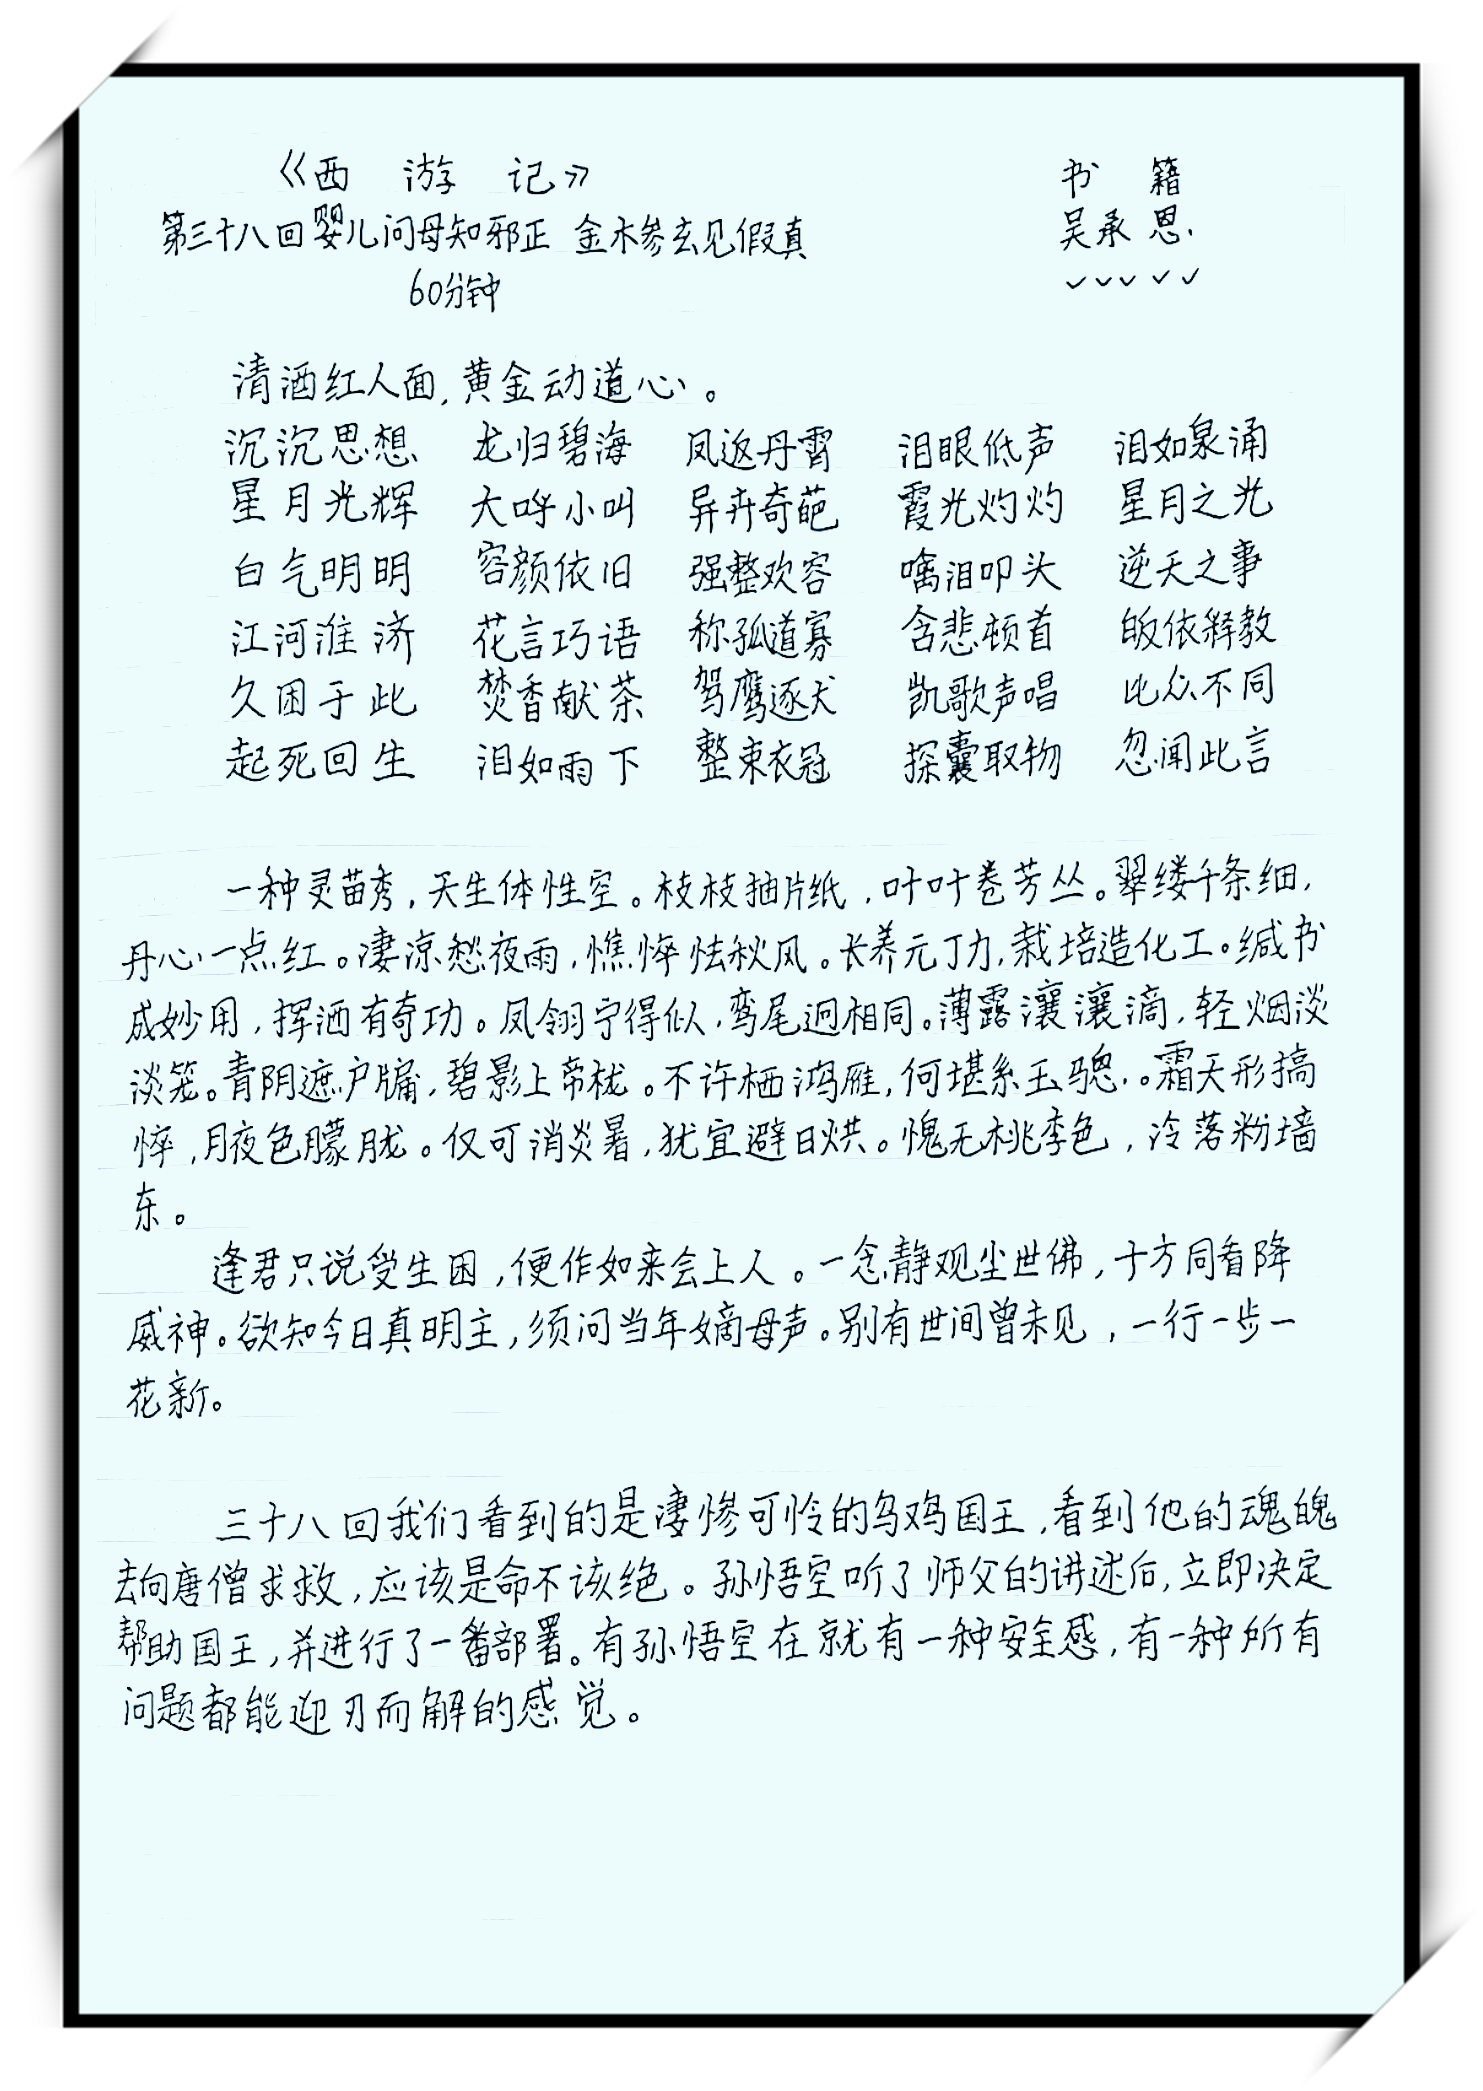 《西 游 记》 书 籍
第三十八回婴儿问母知邪正 金木参玄见假真 吴承恩.
60分钟 ✓✓✓✓✓
清酒红人面,黄金动道心。
沉沉思想 龙归碧海 凤返丹霄 泪眼低声 泪如泉涌
星月光辉 大呼小叫 异卉奇葩 霞光灼灼 星月之光
白气明明 容颜依旧 强整欢容 噙泪叩头 逆天之事
江河淮济 花言巧语 称孤道寡 含悲顿首 皈依释教
久困于此 焚香献茶 驾鹰逐犬 凯歌声唱 比众不同
起死回生 泪如雨下 整束衣冠 探囊取物 忽闻此言
一种灵苗秀,天生体性空。枝枝抽片纸,叶叶卷芳丛。翠缕千条细,
丹心一点红。凄凉愁夜雨,憔悴怯秋风。长养元丁力,栽培造化工。缄书
成妙用,挥洒有奇功。凤翎宁得似,鸾尾迥相同。薄露瀼瀼滴,轻烟淡
淡笼。青阴遮户牖,碧影上帘栊。不许栖鸿雁,何堪系玉骢。霜天形搞
悴,月夜色朦胧。仅可消炎暑,犹宜避日烘。愧无桃李色,冷落粉墙
东。
逢君只说受生困,便作如来会上人。一念静观尘世佛,十方同看降
威神。欲知今日真明主,须问当年嫡母声。别有世间曾未见,一行一步一
花新。
三十八回我们看到的是凄惨可怜的乌鸡国王,看到他的魂魄
去向唐僧求救,应该是命不该绝。孙悟空听了师父的讲述后,立即决定
帮助国王,并进行了一番部署。有孙悟空在就有一种安全感,有一种所有
问题都能迎刃而解的感觉。